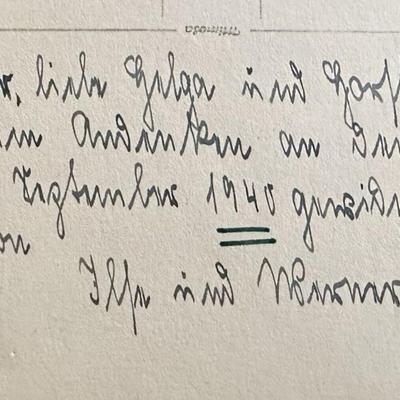 Mimosa
r, liebe Helga und Hors
um Andenken an den
September 1940 gewidm
on
Ilse und Werner